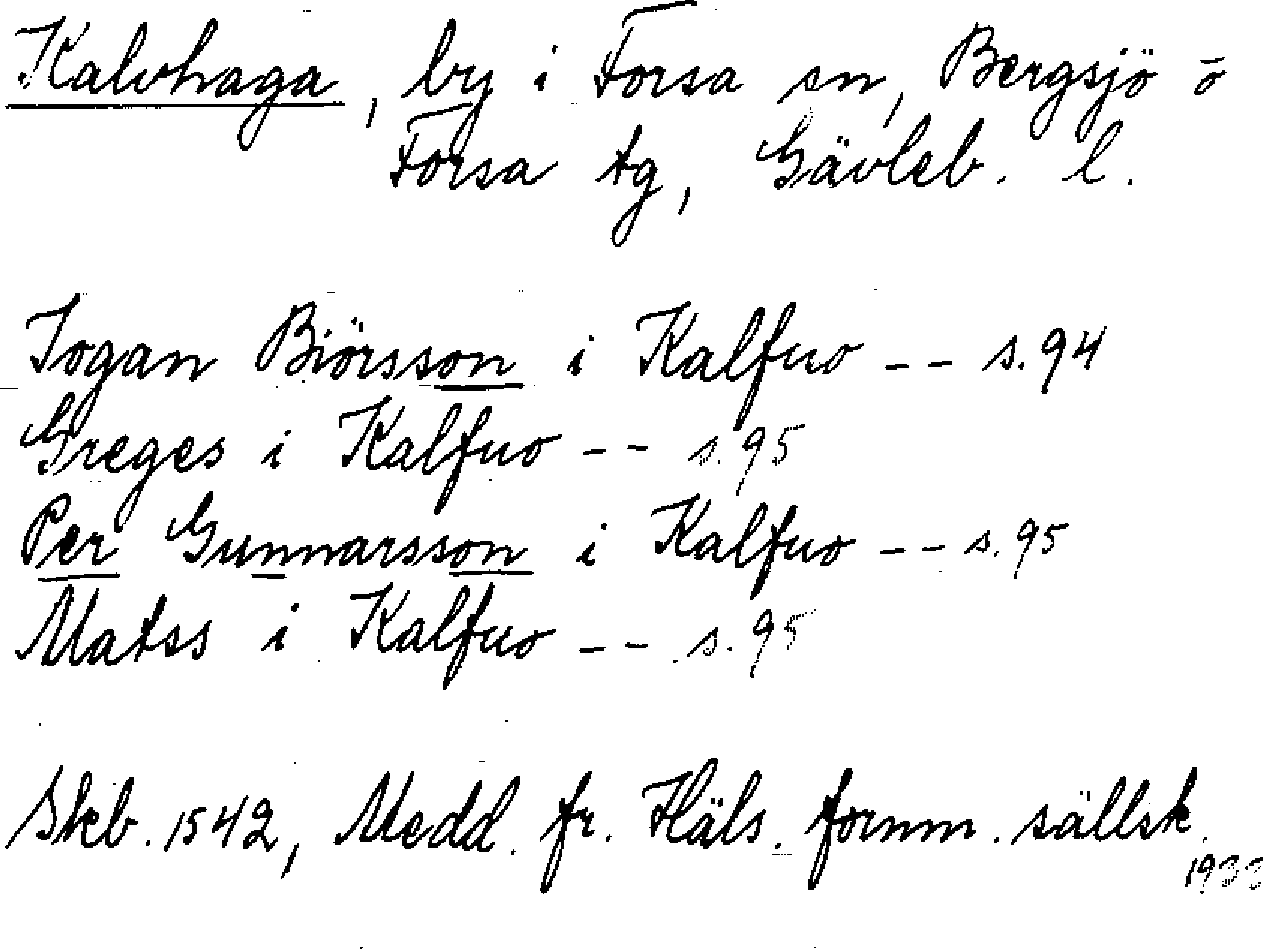 Kalvhaga, by i Forsa sn, Bergsjö o
Forsa tg, Gävleb. l.
Jogan Biörsson i Kalfuo -- s.94
Greges i Kalfuo -- s.95
Per Gunnarsson i Kalfuo -- s.95
Matss i Kalfuo -- s.95
Skb. 1542, Medd. fr. Häls. fornm. sällsk.
1933